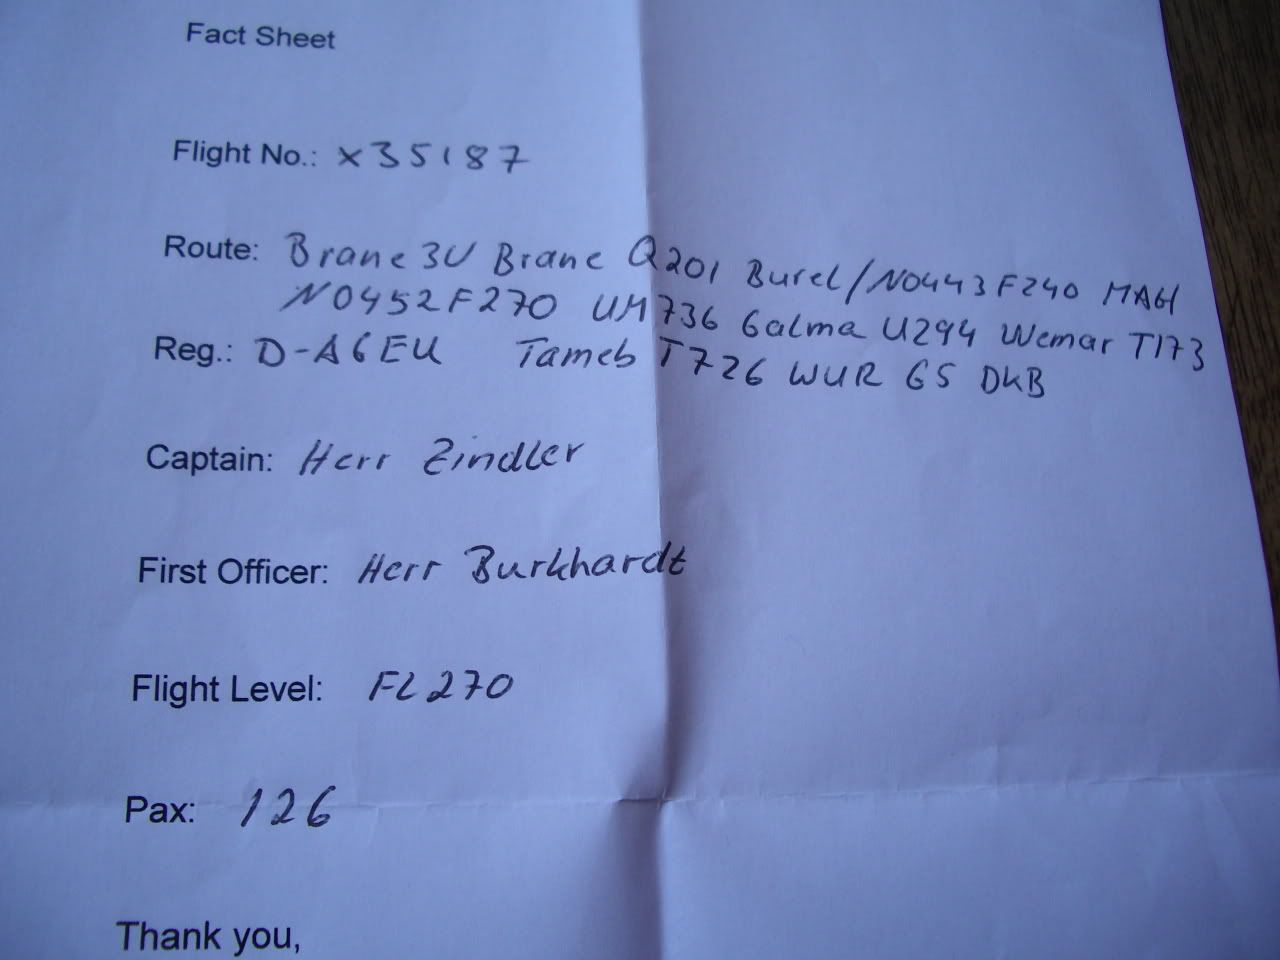 Fact Sheet
Flight No.: X35187
Route: Brane 3U Brane Q201 Burel/N0443F240 MAG/
N0452F270 UM736 Galma U294 Wemar T173
Reg.: D-AGEU Tameb T726 WUR G5 DKB
Captain: Herr Zindler
First Officer: Herr Burkhardt
Flight Level: FL270
Pax: 126
Thank you,